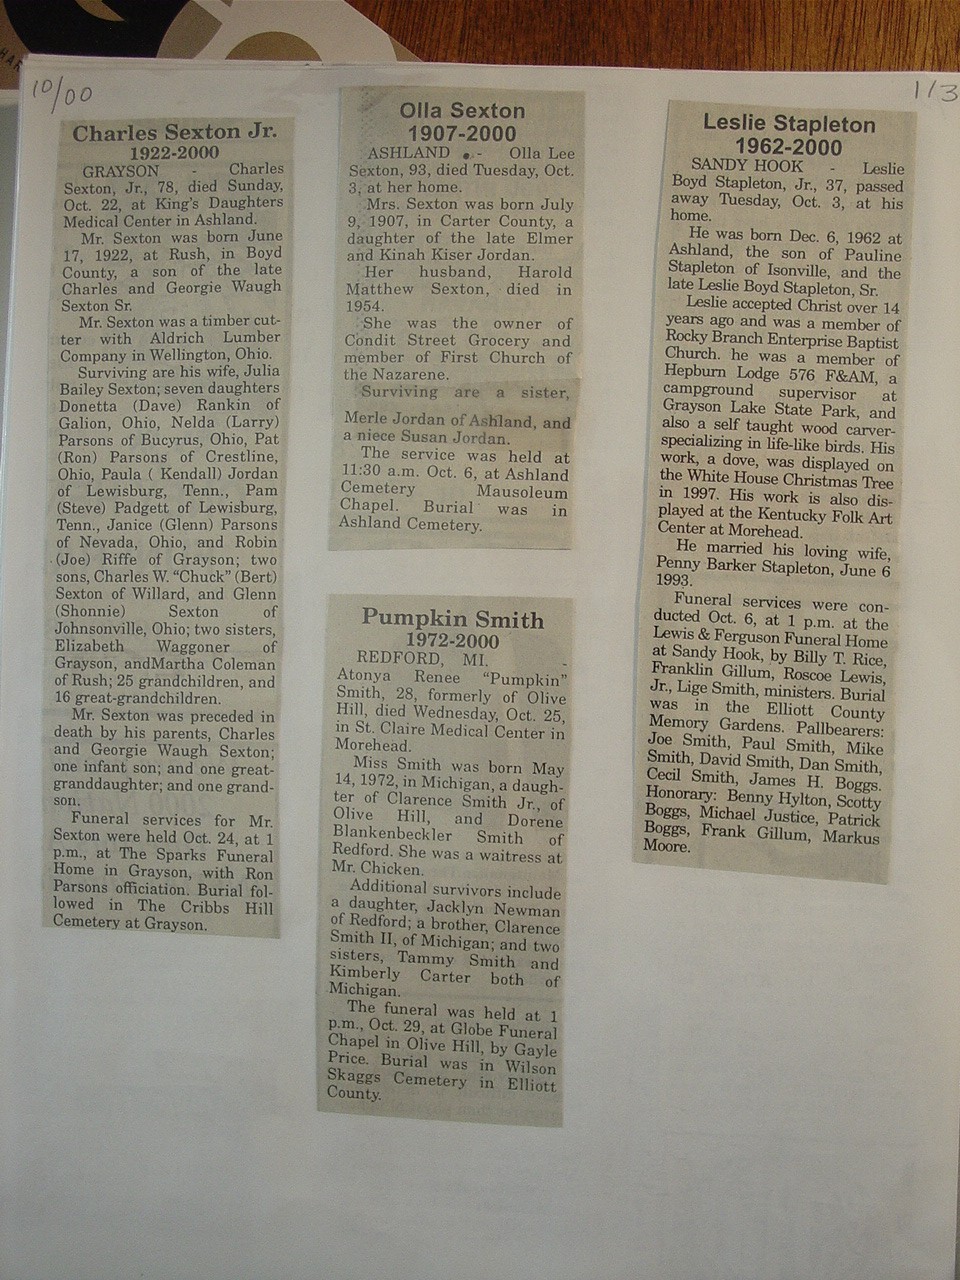 HAR
10/00
113
Charles Sexton Jr.
1922-2000
GRAYSON - Charles
Sexton, Jr., 78, died Sunday,
Oct. 22, at King's Daughters
Medical Center in Ashland.
Mr. Sexton was born June
17, 1922, at Rush, in Boyd
County, a son of the late
Charles and Georgie Waugh
Sexton Sr.
Mr. Sexton was a timber cut-
ter with Aldrich Lumber
Company in Wellington, Ohio.
Surviving are his wife, Julia
Bailey Sexton; seven daughters
Donetta (Dave) Rankin of
Galion, Ohio, Nelda (Larry)
Parsons of Bucyrus, Ohio, Pat
(Ron) Parsons of Crestline,
Ohio, Paula ( Kendall) Jordan
of Lewisburg, Tenn., Pam
(Steve) Padgett of Lewisburg,
Tenn., Janice (Glenn) Parsons
of Nevada, Ohio, and Robin
(Joe) Riffe of Grayson; two
sons, Charles W. "Chuck" (Bert)
Sexton of Willard, and Glenn
(Shonnie) Sexton of
Johnsonville, Ohio; two sisters,
Elizabeth Waggoner of
Grayson, andMartha Coleman
of Rush; 25 grandchildren, and
16 great-grandchildren.
Mr. Sexton was preceded in
death by his parents, Charles
and Georgie Waugh Sexton;
one infant son; and one great-
granddaughter; and one grand-
son.
Funeral services for Mr.
Sexton were held Oct. 24, at 1
p.m., at The Sparks Funeral
Home in Grayson, with Ron
Parsons officiation. Burial fol-
lowed in The Cribbs Hill
Cemetery at Grayson.
Olla Sexton
1907-2000
ASHLAND - Olla Lee
Sexton, 93, died Tuesday, Oct.
3, at her home.
Mrs. Sexton was born July
9, 1907, in Carter County, a
daughter of the late Elmer
and Kinah Kiser Jordan.
Her husband, Harold
Matthew Sexton, died in
1954.
She was the owner of
Condit Street Grocery and
member of First Church of
the Nazarene.
Surviving are a sister,
Merle Jordan of Ashland, and
a niece Susan Jordan.
The service was held at
11:30 a.m. Oct. 6, at Ashland
Cemetery Mausoleum
Chapel. Burial was in
Ashland Cemetery.
Pumpkin Smith
1972-2000
REDFORD, MI. -
Atonya Renee "Pumpkin"
Smith, 28, formerly of Olive
Hill, died Wednesday, Oct. 25,
in St. Claire Medical Center in
Morehead.
Miss Smith was born May
14, 1972, in Michigan, a daugh-
ter of Clarence Smith Jr., of
Olive Hill, and Dorene
Blankenbeckler Smith of
Redford. She was a waitress at
Mr. Chicken.
Additional survivors include
a daughter, Jacklyn Newman
of Redford; a brother, Clarence
Smith II, of Michigan; and two
sisters, Tammy Smith and
Kimberly Carter both of
Michigan.
The funeral was held at 1
p.m., Oct. 29, at Globe Funeral
Chapel in Olive Hill, by Gayle
Price. Burial was in Wilson
Skaggs Cemetery in Elliott
County.
Leslie Stapleton
1962-2000
SANDY HOOK - Leslie
Boyd Stapleton, Jr., 37, passed
away Tuesday, Oct. 3, at his
home.
He was born Dec. 6, 1962 at
Ashland, the son of Pauline
Stapleton of Isonville, and the
late Leslie Boyd Stapleton, Sr.
Leslie accepted Christ over 14
years ago and was a member of
Rocky Branch Enterprise Baptist
Church. he was a member of
Hepburn Lodge 576 F&AM, a
campground supervisor at
Grayson Lake State Park, and
also a self taught wood carver-
specializing in life-like birds. His
work, a dove, was displayed on
the White House Christmas Tree
in 1997. His work is also dis-
played at the Kentucky Folk Art
Center at Morehead.
He married his loving wife,
Penny Barker Stapleton, June 6
1993.
Funeral services were con-
ducted Oct. 6, at 1 p.m. at the
Lewis & Ferguson Funeral Home
at Sandy Hook, by Billy T. Rice,
Franklin Gillum, Roscoe Lewis,
Jr., Lige Smith, ministers. Burial
was in the Elliott County
Memory Gardens. Pallbearers:
Joe Smith, Paul Smith, Mike
Smith, David Smith, Dan Smith,
Cecil Smith, James H. Boggs.
Honorary: Benny Hylton, Scotty
Boggs, Michael Justice, Patrick
Boggs, Frank Gillum, Markus
Moore.